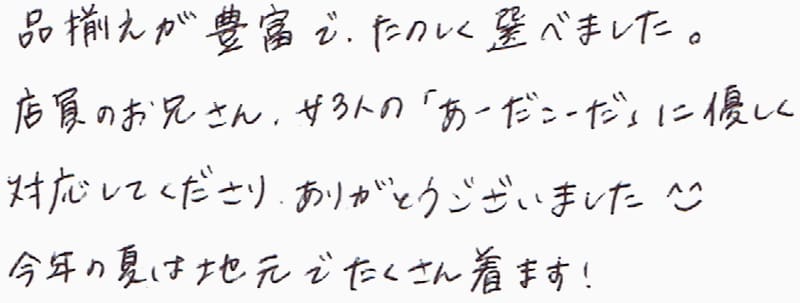 品揃えが豊富で、たのしく選べました。
店員のお兄さん、女3人の「あーだこーだ」に優しく
対応してくださり、ありがとうございました ^^
今年の夏は地元でたくさん着ます!